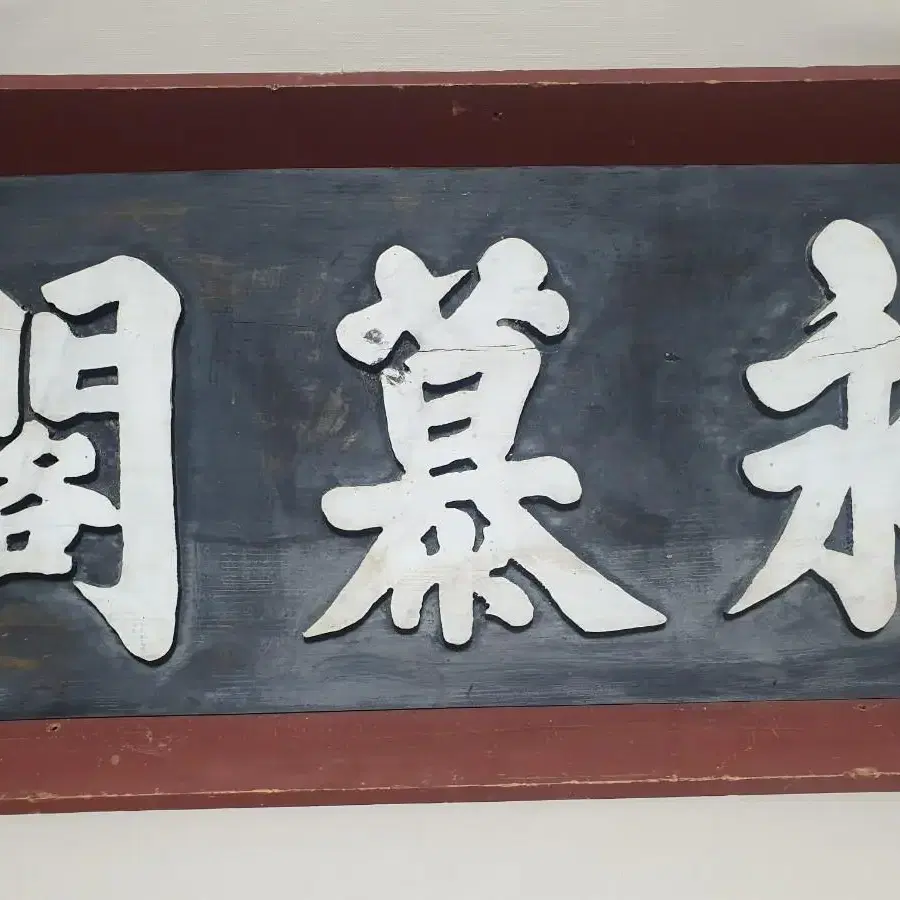 永慕閣